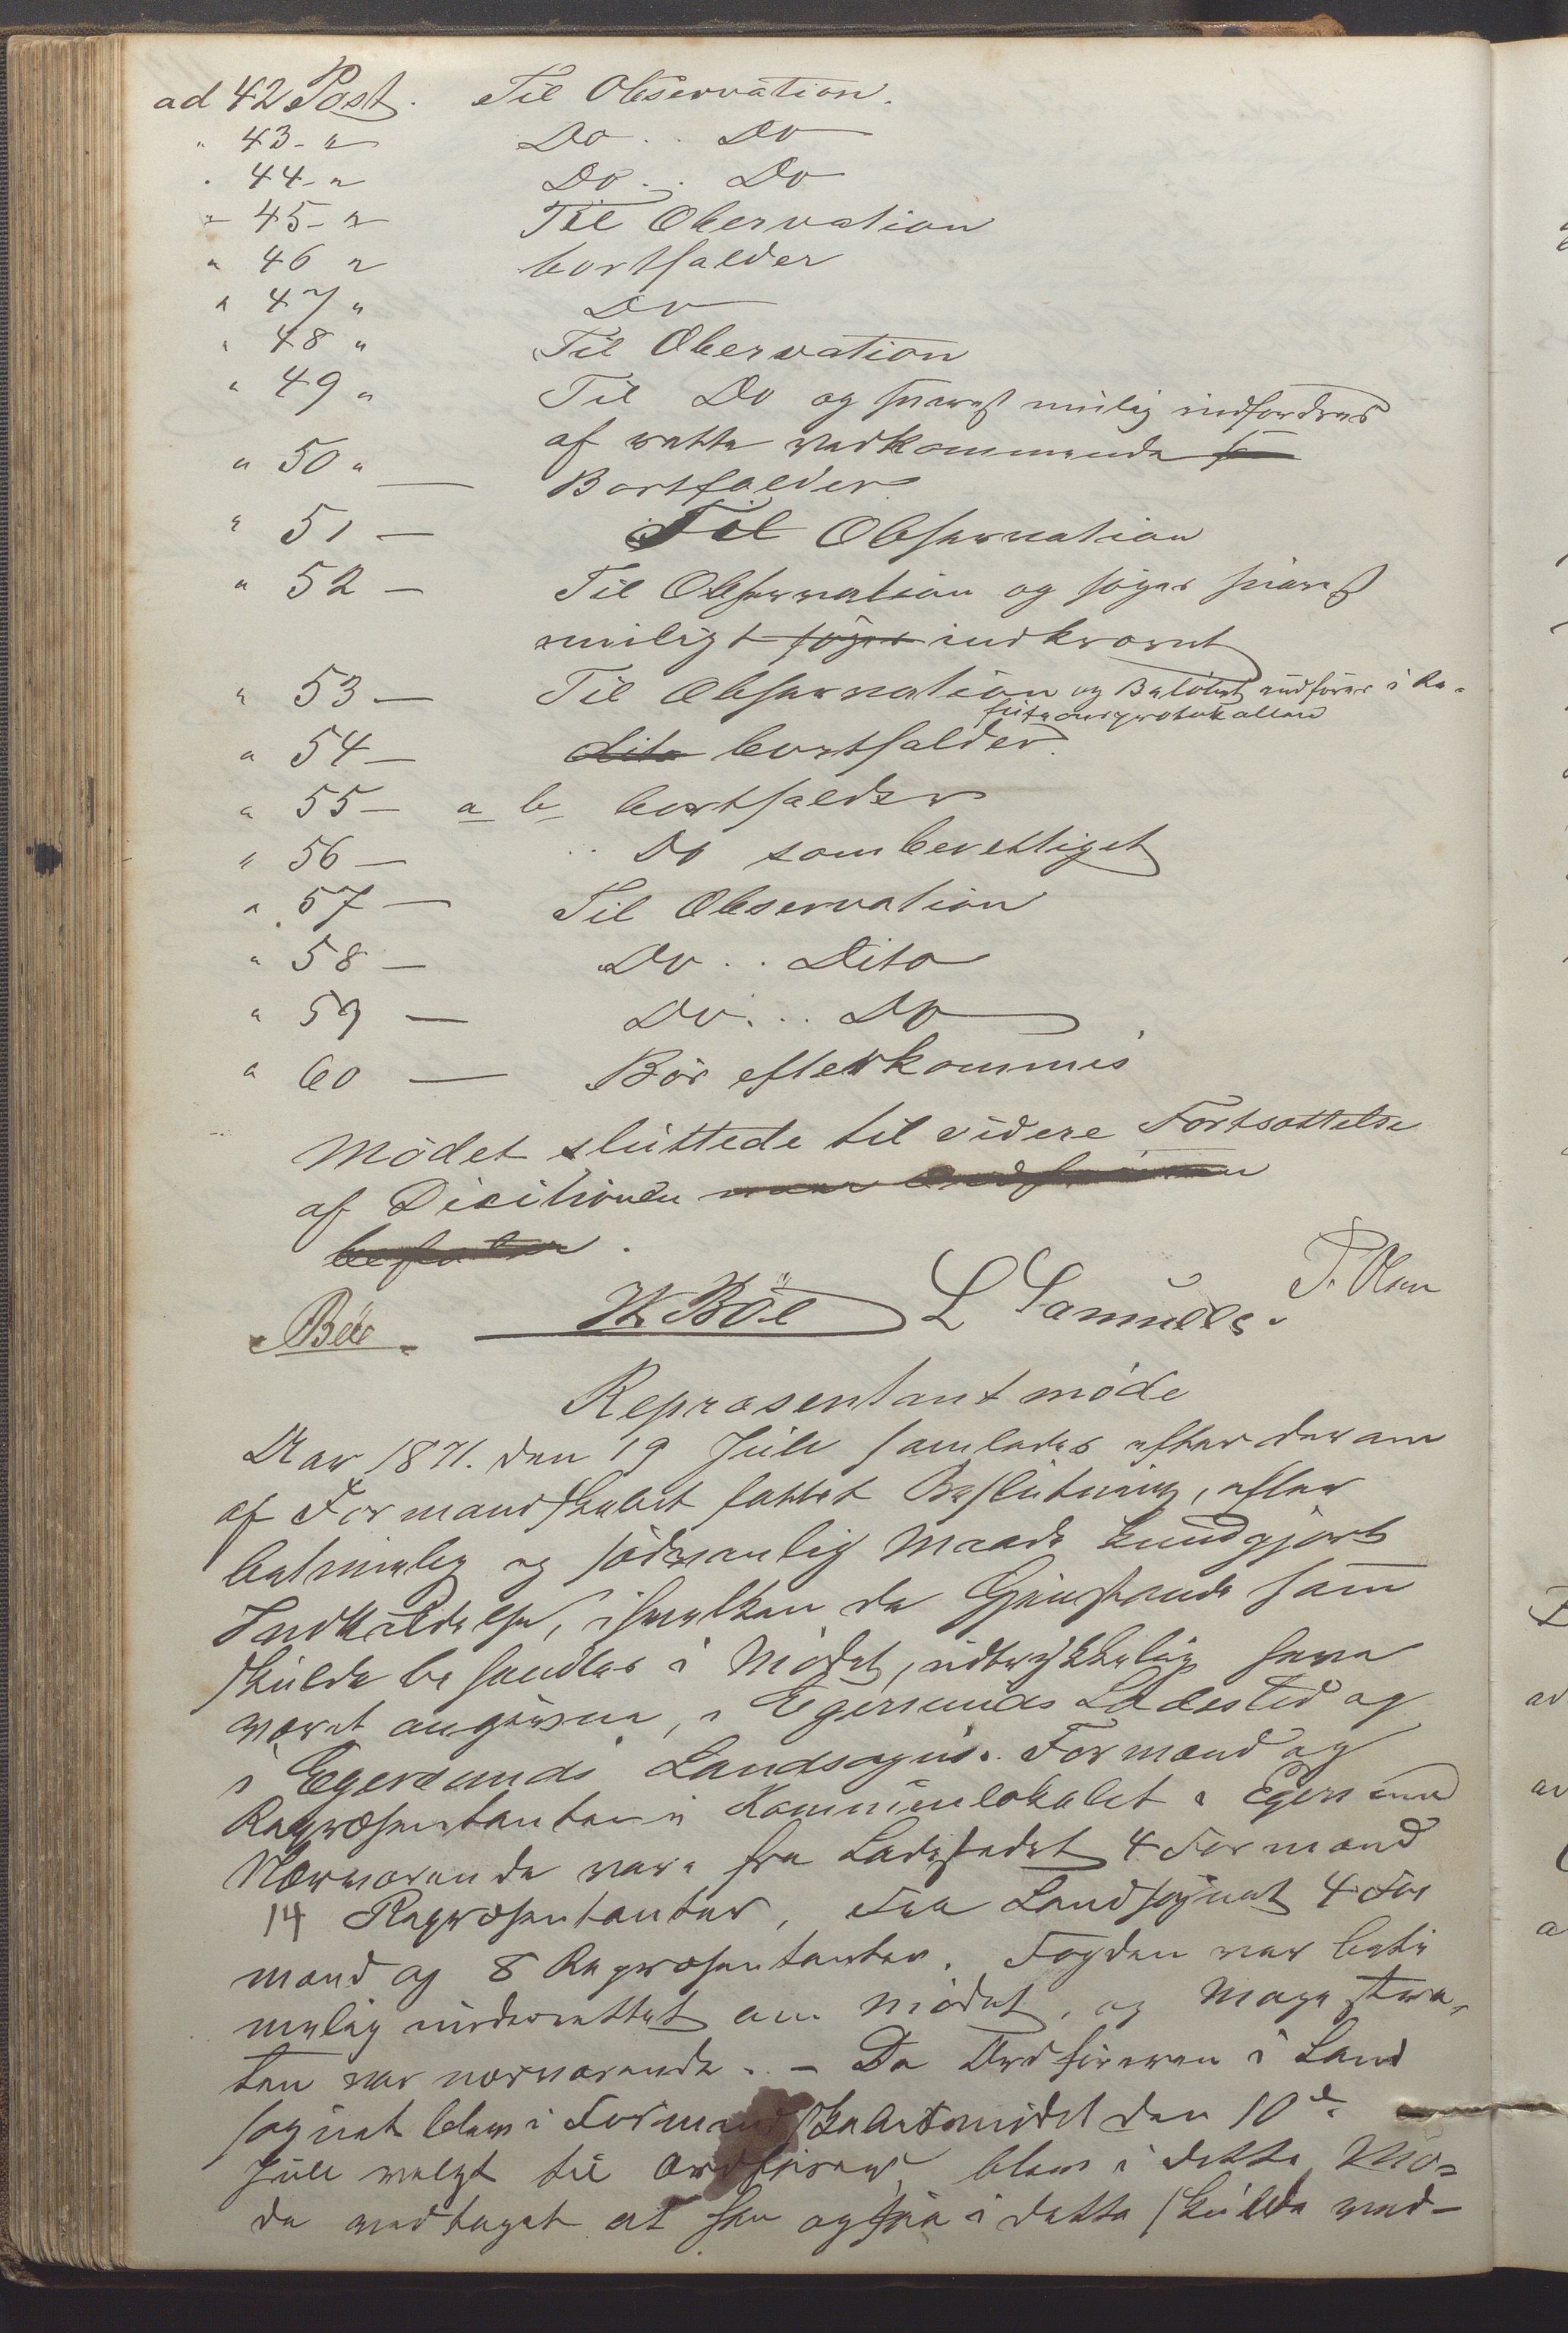 ad 42 Post. Til Observation.
" 43 - " Do .. Do
" 44 - " Do .. Do
" 45 - " Til Obervation
" 46 " bortfalder
" 47 " Do
" 48 " Til Obervation
" 49 " Til Do og snarest muligt indfordres
af rette Vedkommende
" 50 " — Bortfalder
" 51 — Til Observation
" 52 — Til Observation og søges snarest
muligt søges indkrævet
" 53 — Til Observation og Beløbet indføres i Re-
stanceprotokollen
" 54 — dito bortfalder.
" 55 — a b bortfalder
" 56 — " Do som berettiget
" 57 — Til Observation
" 58 — Do .. Dito
" 59 — Do ... Do
" 60 — Bør efterkommes
Mødet sluttede til videre Fortsættelse
af Decitionen
Bøe W Böe L Samuels. P. Olsen
Repræsentantmøde
Aar 1871. den 19 Juli samledes efter derom
af Formandskabet fattet Beslutning, efter
betimelig og sædvanlig Maade kundgjort
Indkaldelse, i hvilken de Gjenstande som
skulde behandles i Mødet, udtrykkelig have
været angivne, i Egersunds Ladested og
i Egersunds Landsogns Formænd og
Repræsentanter i Kommunelokalet i Egersund
Nærværende vare fra Ladestedet 4 Formænd
14 Repræsentanter, fra Landsognet 4 For
mænd og 8 Repræsentanter. Fogden var beti
melig underrettet om Mødet, og Magistra-
ten var nærværende. - Da Ordføreren i Land
sognet blev i Formandskabsmødet den 10de
Juli valgt til Ordfører, blev i dette Mø-
de vedtaget at han ogsaa i dette skulde ved-